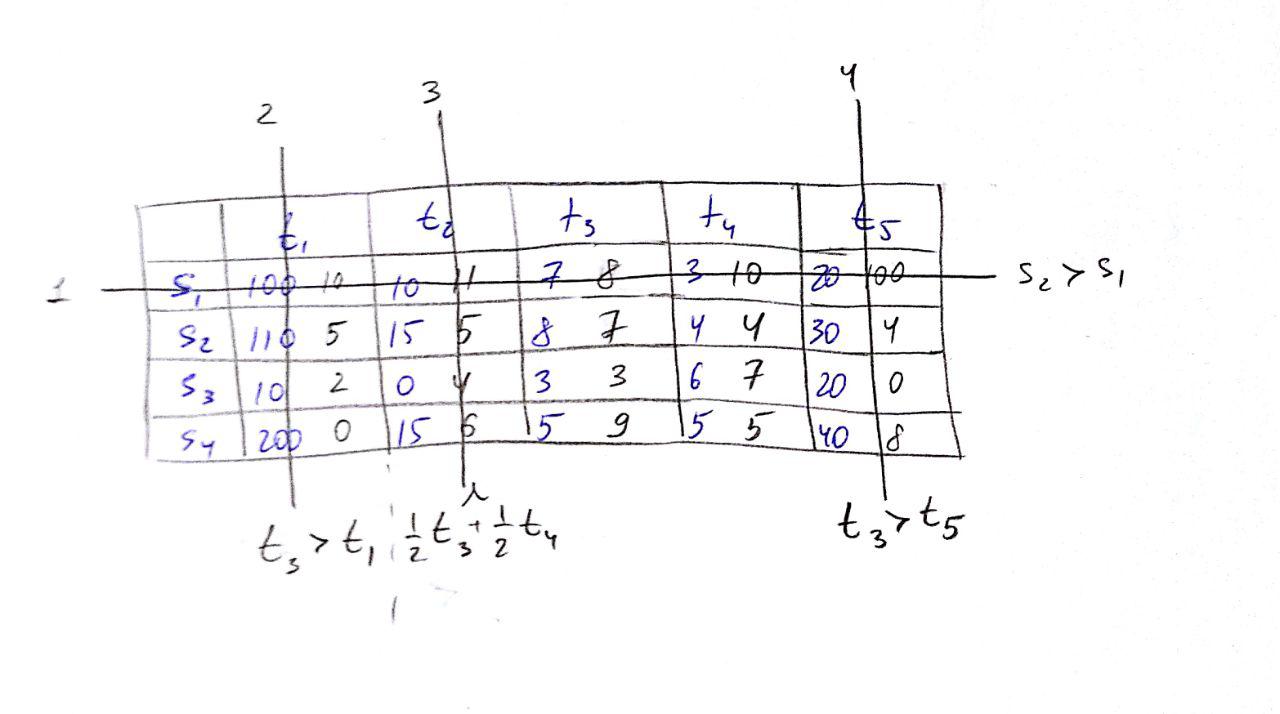 4
3
2
t₁ t₂ t₃ t₄ t₅
1 S₁ 100 10 10 11 7 8 3 10 20 100 S₂ > S₁
S₂ 110 5 15 5 8 7 4 4 30 4
S₃ 10 2 0 4 3 3 6 7 20 0
S₄ 200 0 15 6 5 9 5 5 40 8
t₃ > t₁ ½t₃ + ½t₄ t₃ > t₅